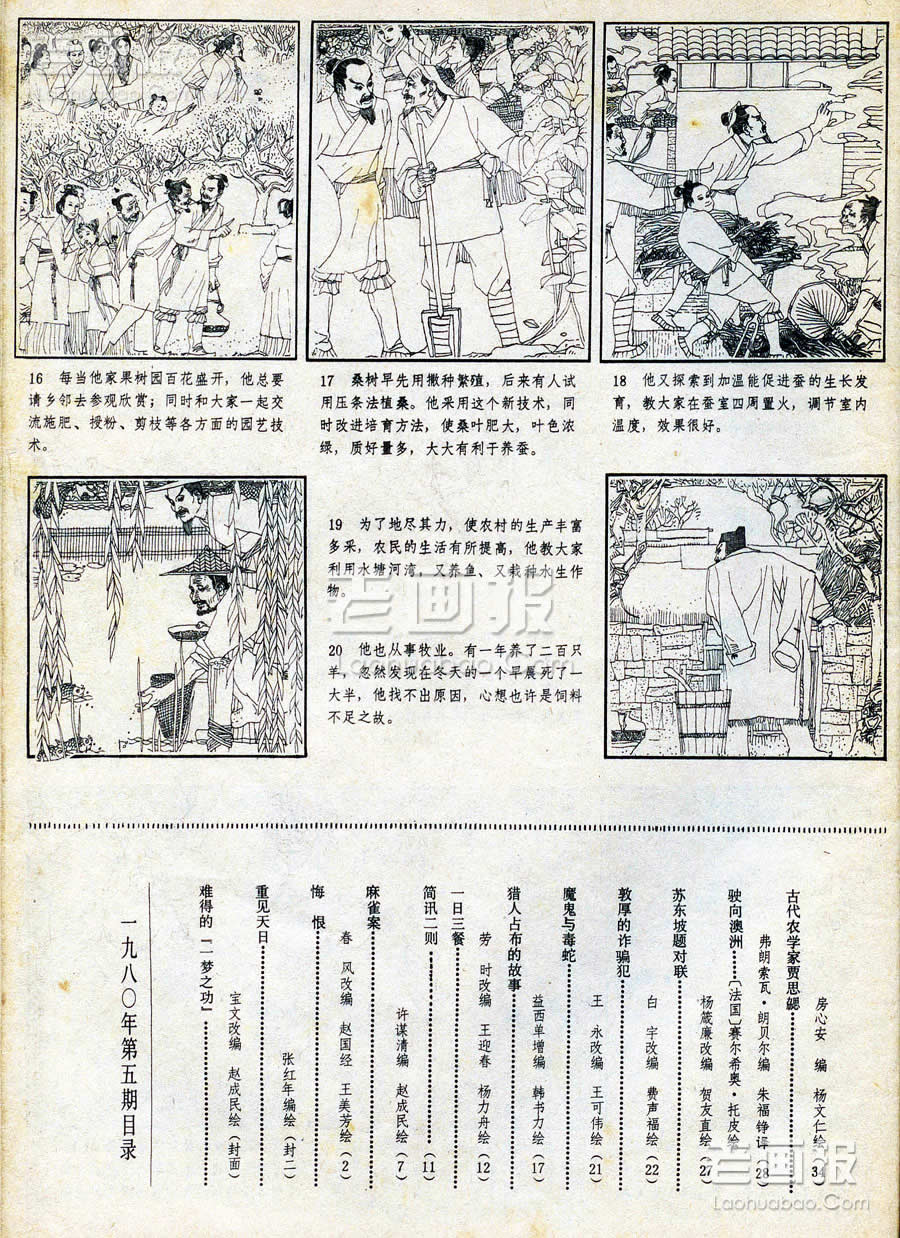 16 每当他家果树园百花盛开，他总要
请乡邻去参观欣赏；同时和大家一起交
流施肥、授粉、剪枝等各方面的园艺技
术。
17 桑树早先用撒种繁殖，后来有人试
用压条法植桑。他采用这个新技术，同
时改进培育方法，使桑叶肥大，叶色浓
绿，质好量多，大大有利于养蚕。
18 他又探索到加温能促进蚕的生长发
育，教大家在蚕室四周置火，调节室内
温度，效果很好。
19 为了地尽其力，使农村的生产丰富
多采，农民的生活有所提高，他教大家
利用水塘河湾，又养鱼、又栽种水生作
物。
20 他也从事牧业。有一年养了二百只
羊，忽然发现在冬天的一个早晨死了一
大半，他找不出原因，心想也许是饲料
不足之故。
老画报
Laohuabao.Com
一九八〇年第五期目录
难得的“一梦之功”
宝文改编 赵成民绘（封面）
重见天日
张红年编绘（封二）
悔恨
春风改编 赵国经 王美芳绘（2）
麻雀案
许谋清编 赵成民绘（7）
简讯二则（11）
一日三餐
劳时改编 王迎春 杨力舟绘（12）
猎人占布的故事
益西单增编 韩书力绘（17）
魔鬼与毒蛇
王永改编 王可伟绘（21）
敦厚的诈骗犯
白宇改编 费声福绘（22）
苏东坡题对联
杨箴廉改编 贺友直绘（27）
驶向澳洲……〔法国〕赛尔希奥·托皮绘
弗朗索瓦·朗贝尔编 朱福铮译（28）
古代农学家贾思勰
房心安 编 杨文仁绘（34）
老画报
Laohuabao.Com